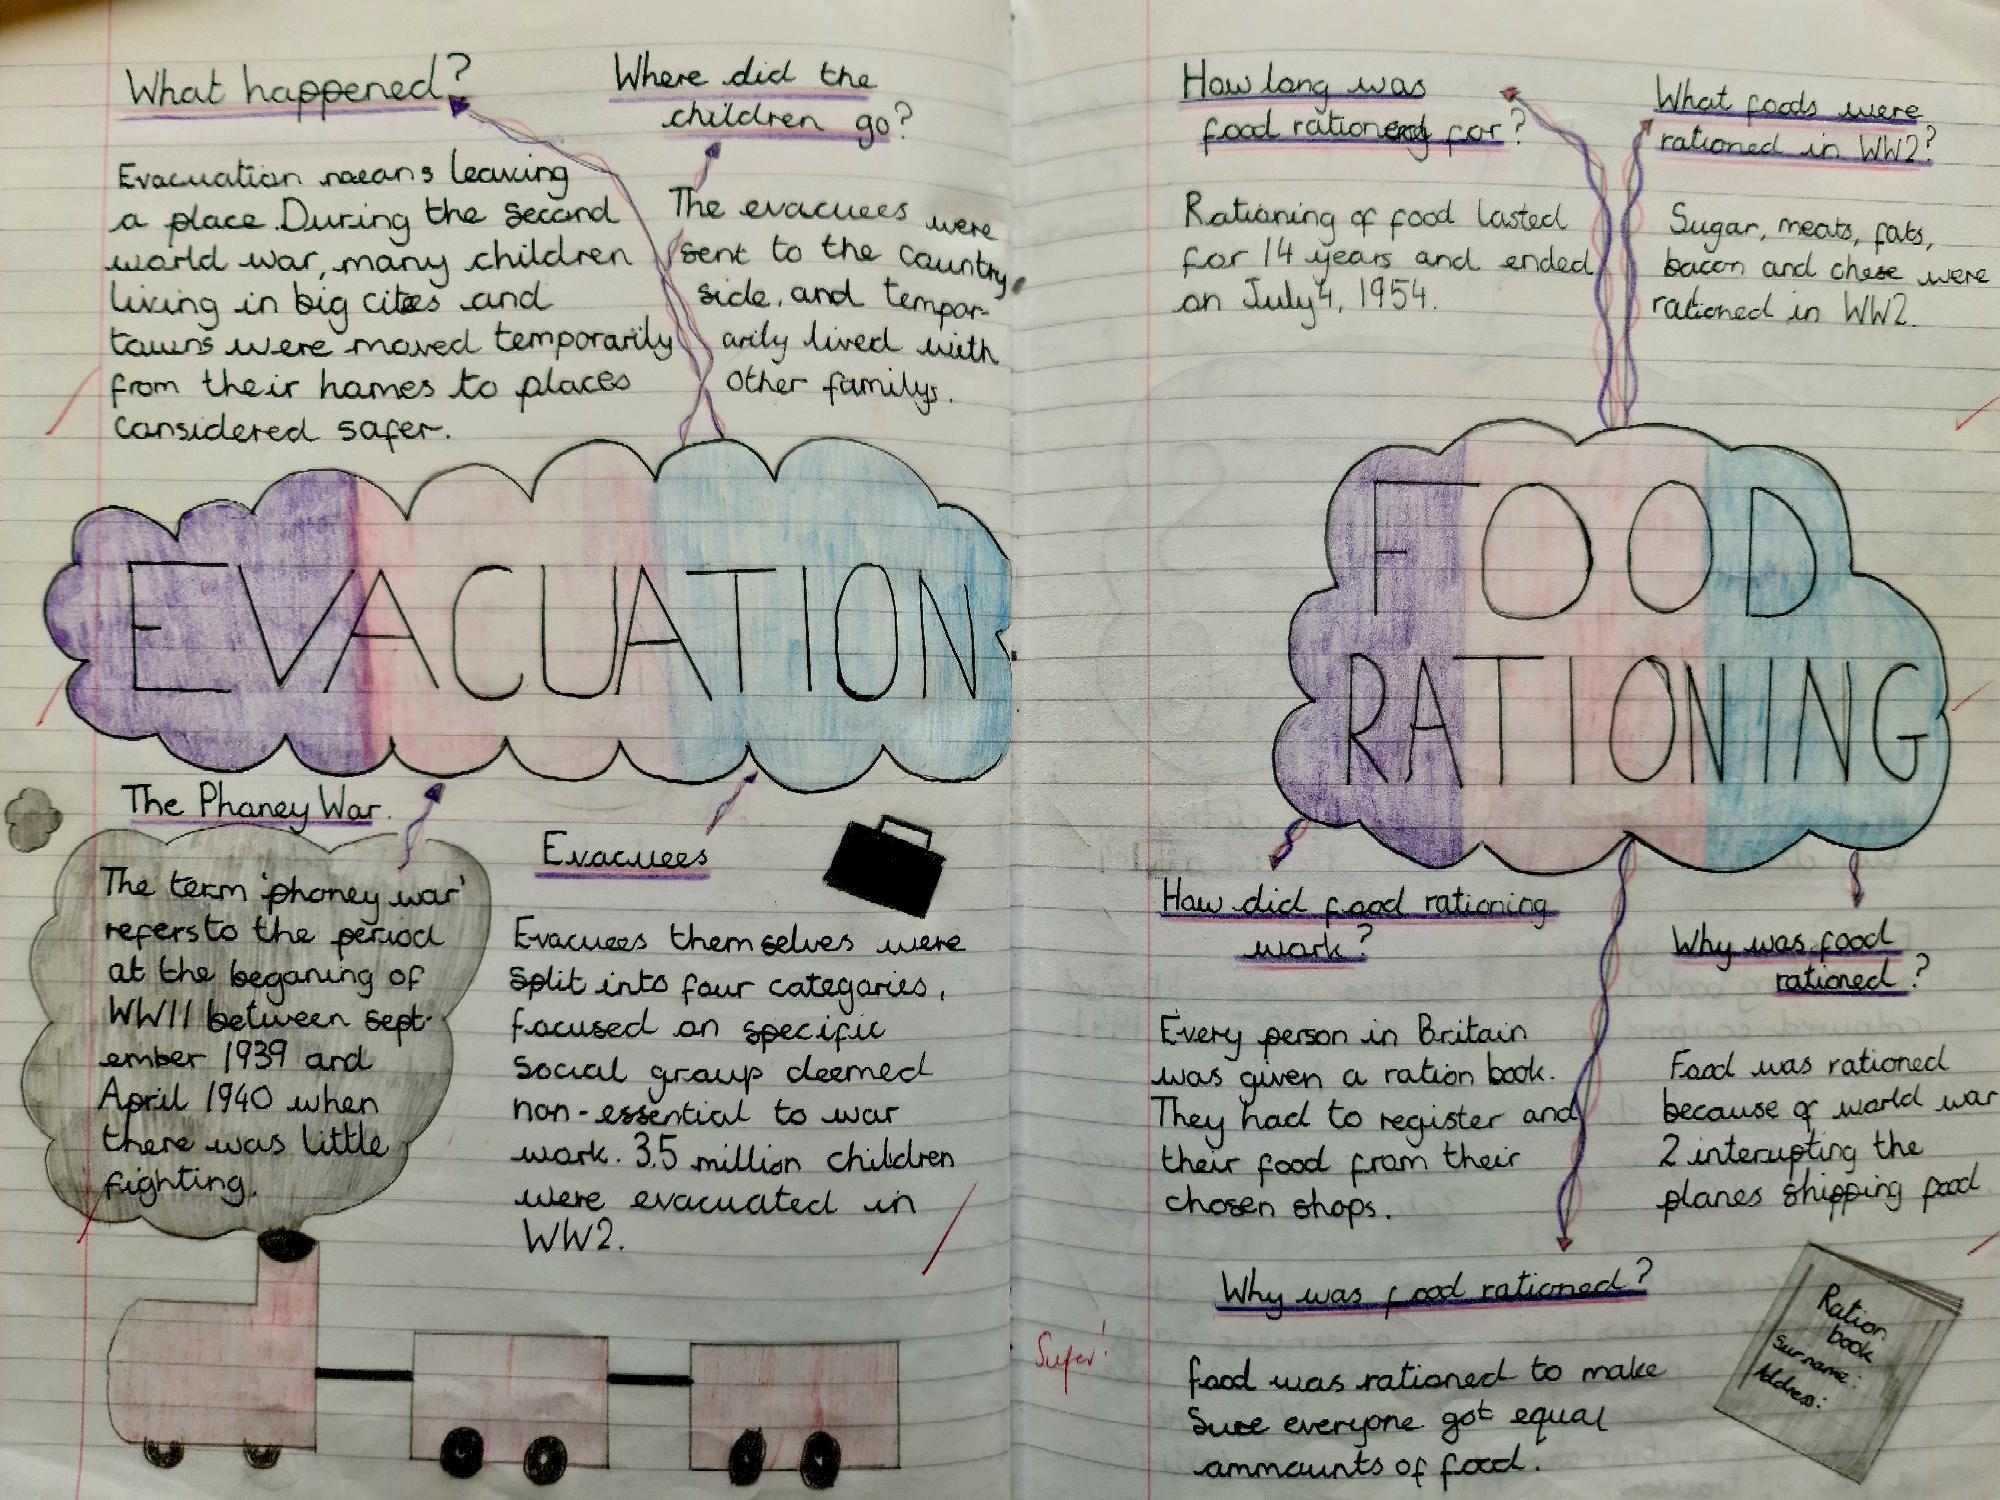 What happened?
Evacuation means leaving
a place. During the second
world war, many children
living in big cites and
towns were moved temporarily
from their homes to places
considered safer.
Where did the
children go?
The evacuees were
sent to the country
side, and tempor-
arily lived with
other familys.
EVACUATION
The Phoney War.
The term 'phoney war'
refers to the period
at the beganing of
WWII between sept-
ember 1939 and
April 1940 when
there was little
fighting.
Evacuees
Evacuees themselves were
split into four categories,
focused on specific
social group deemed
non-essential to war
work. 3.5 million children
were evacuated in
WW2.
How long was
food rationed for?
Rationing of food lasted
for 14 years and ended
on July 4, 1954.
What foods were
rationed in WW2?
Sugar, meats, fats,
bacon and chese were
rationed in WW2.
FOOD
RATIONING
How did food rationing
work?
Every person in Britain
was given a ration book.
They had to register and
their food from their
chosen shops.
Why was food
rationed?
Food was rationed
because of world war
2 interupting the
planes shipping food
Why was food rationed?
food was rationed to make
Sure everyone got equal
ammounts of food.
Ration
book
Surname:
Address:
Super!